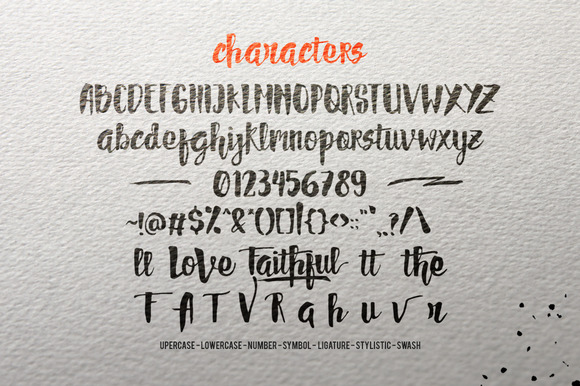 characters
ABCDEFGHIJKLMNOPQRSTUVWXYZ
abcdefghijklmnopqrstuvwxyz
0123456789
~!@#$%^&*()[]{}<>:;"',.?/\
ll Love Faithful tt the
F A T V R a h u v r
UPERCASE - LOWERCASE - NUMBER - SYMBOL - LIGATURE - STYLISTIC - SWASH